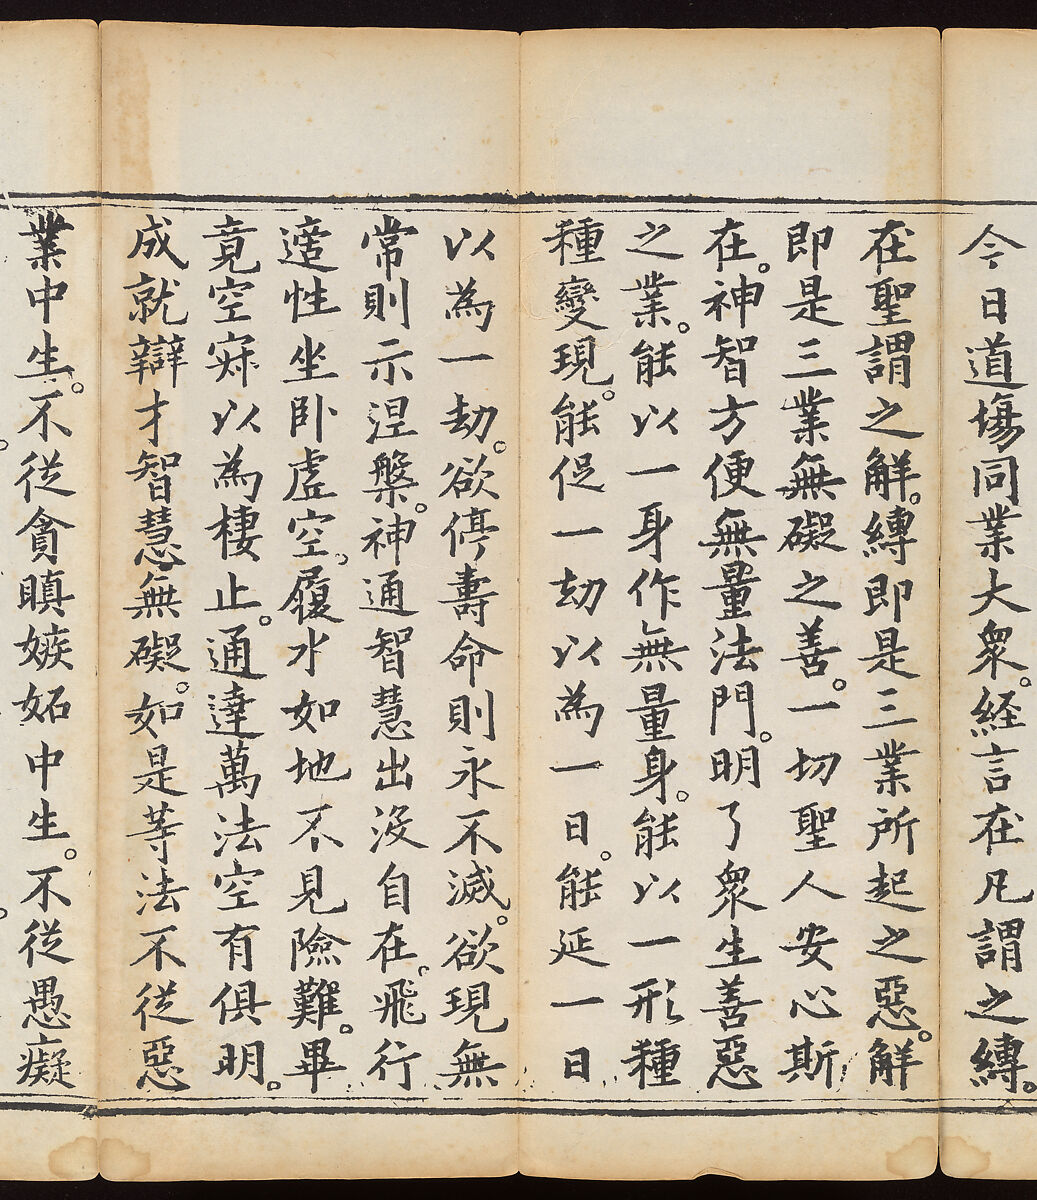 今日道場同業大衆。経言在凡謂之縛。
在聖謂之解。縛即是三業所起之惡。解
即是三業無礙之善。一切聖人安心斯
在。神智方便無量法門。明了衆生善惡
之業。能以一身作無量身。能以一形種
種變現。能促一劫以為一日。能延一日
以為一劫。欲停壽命則永不滅。欲現無
常則示涅槃。神通智慧出沒自在。飛行
適性坐卧虛空。履水如地不見險難。畢
竟空寂以為棲止。通達萬法空有俱明。
成就辯才智慧無礙。如是等法不從惡
業中生。不從貪瞋嫉妬中生。不從愚癡